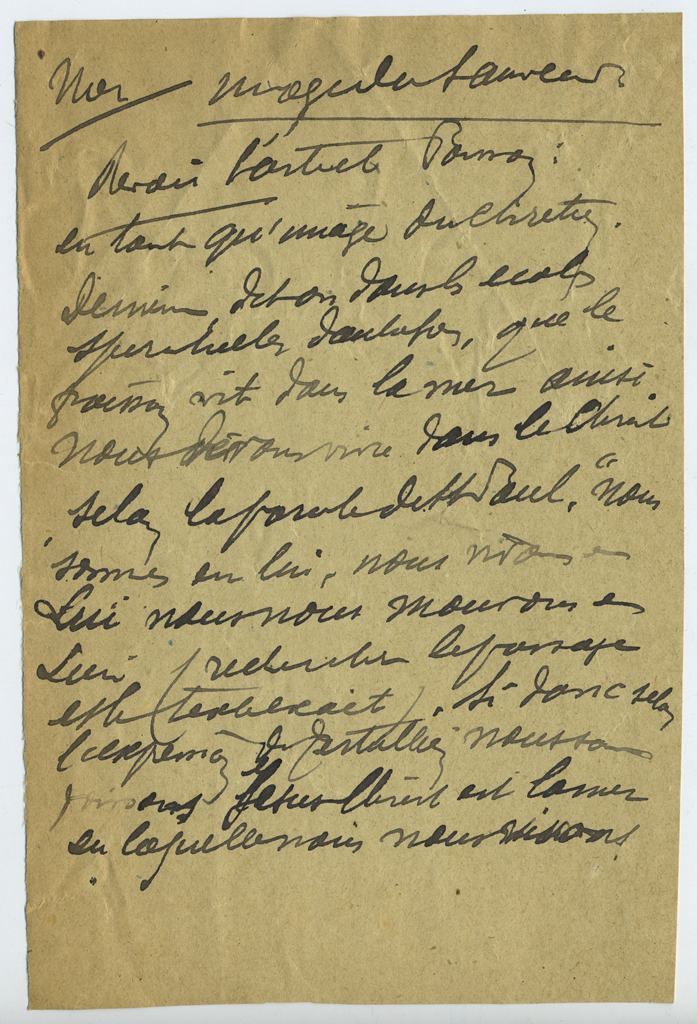 Mer image du Sauveur
Revoir l'article Poisson :
en tant qu'image du Chrétien.
De même, dit on dans les ecoles
spirituelles d'autrefois, que le
poisson vit dans la mer ainsi
nous devons vivre dans le Christ
selon la parole de St Paul, "nous
sommes en lui, nous vivons en
Lui nous nous mouvons en
Lui (rechercher le passage
et le texte exact). Si donc selon
l'expression de Tertullien nous sommes
poissons Jésus Christ est la mer
en laquelle nous nous vivons